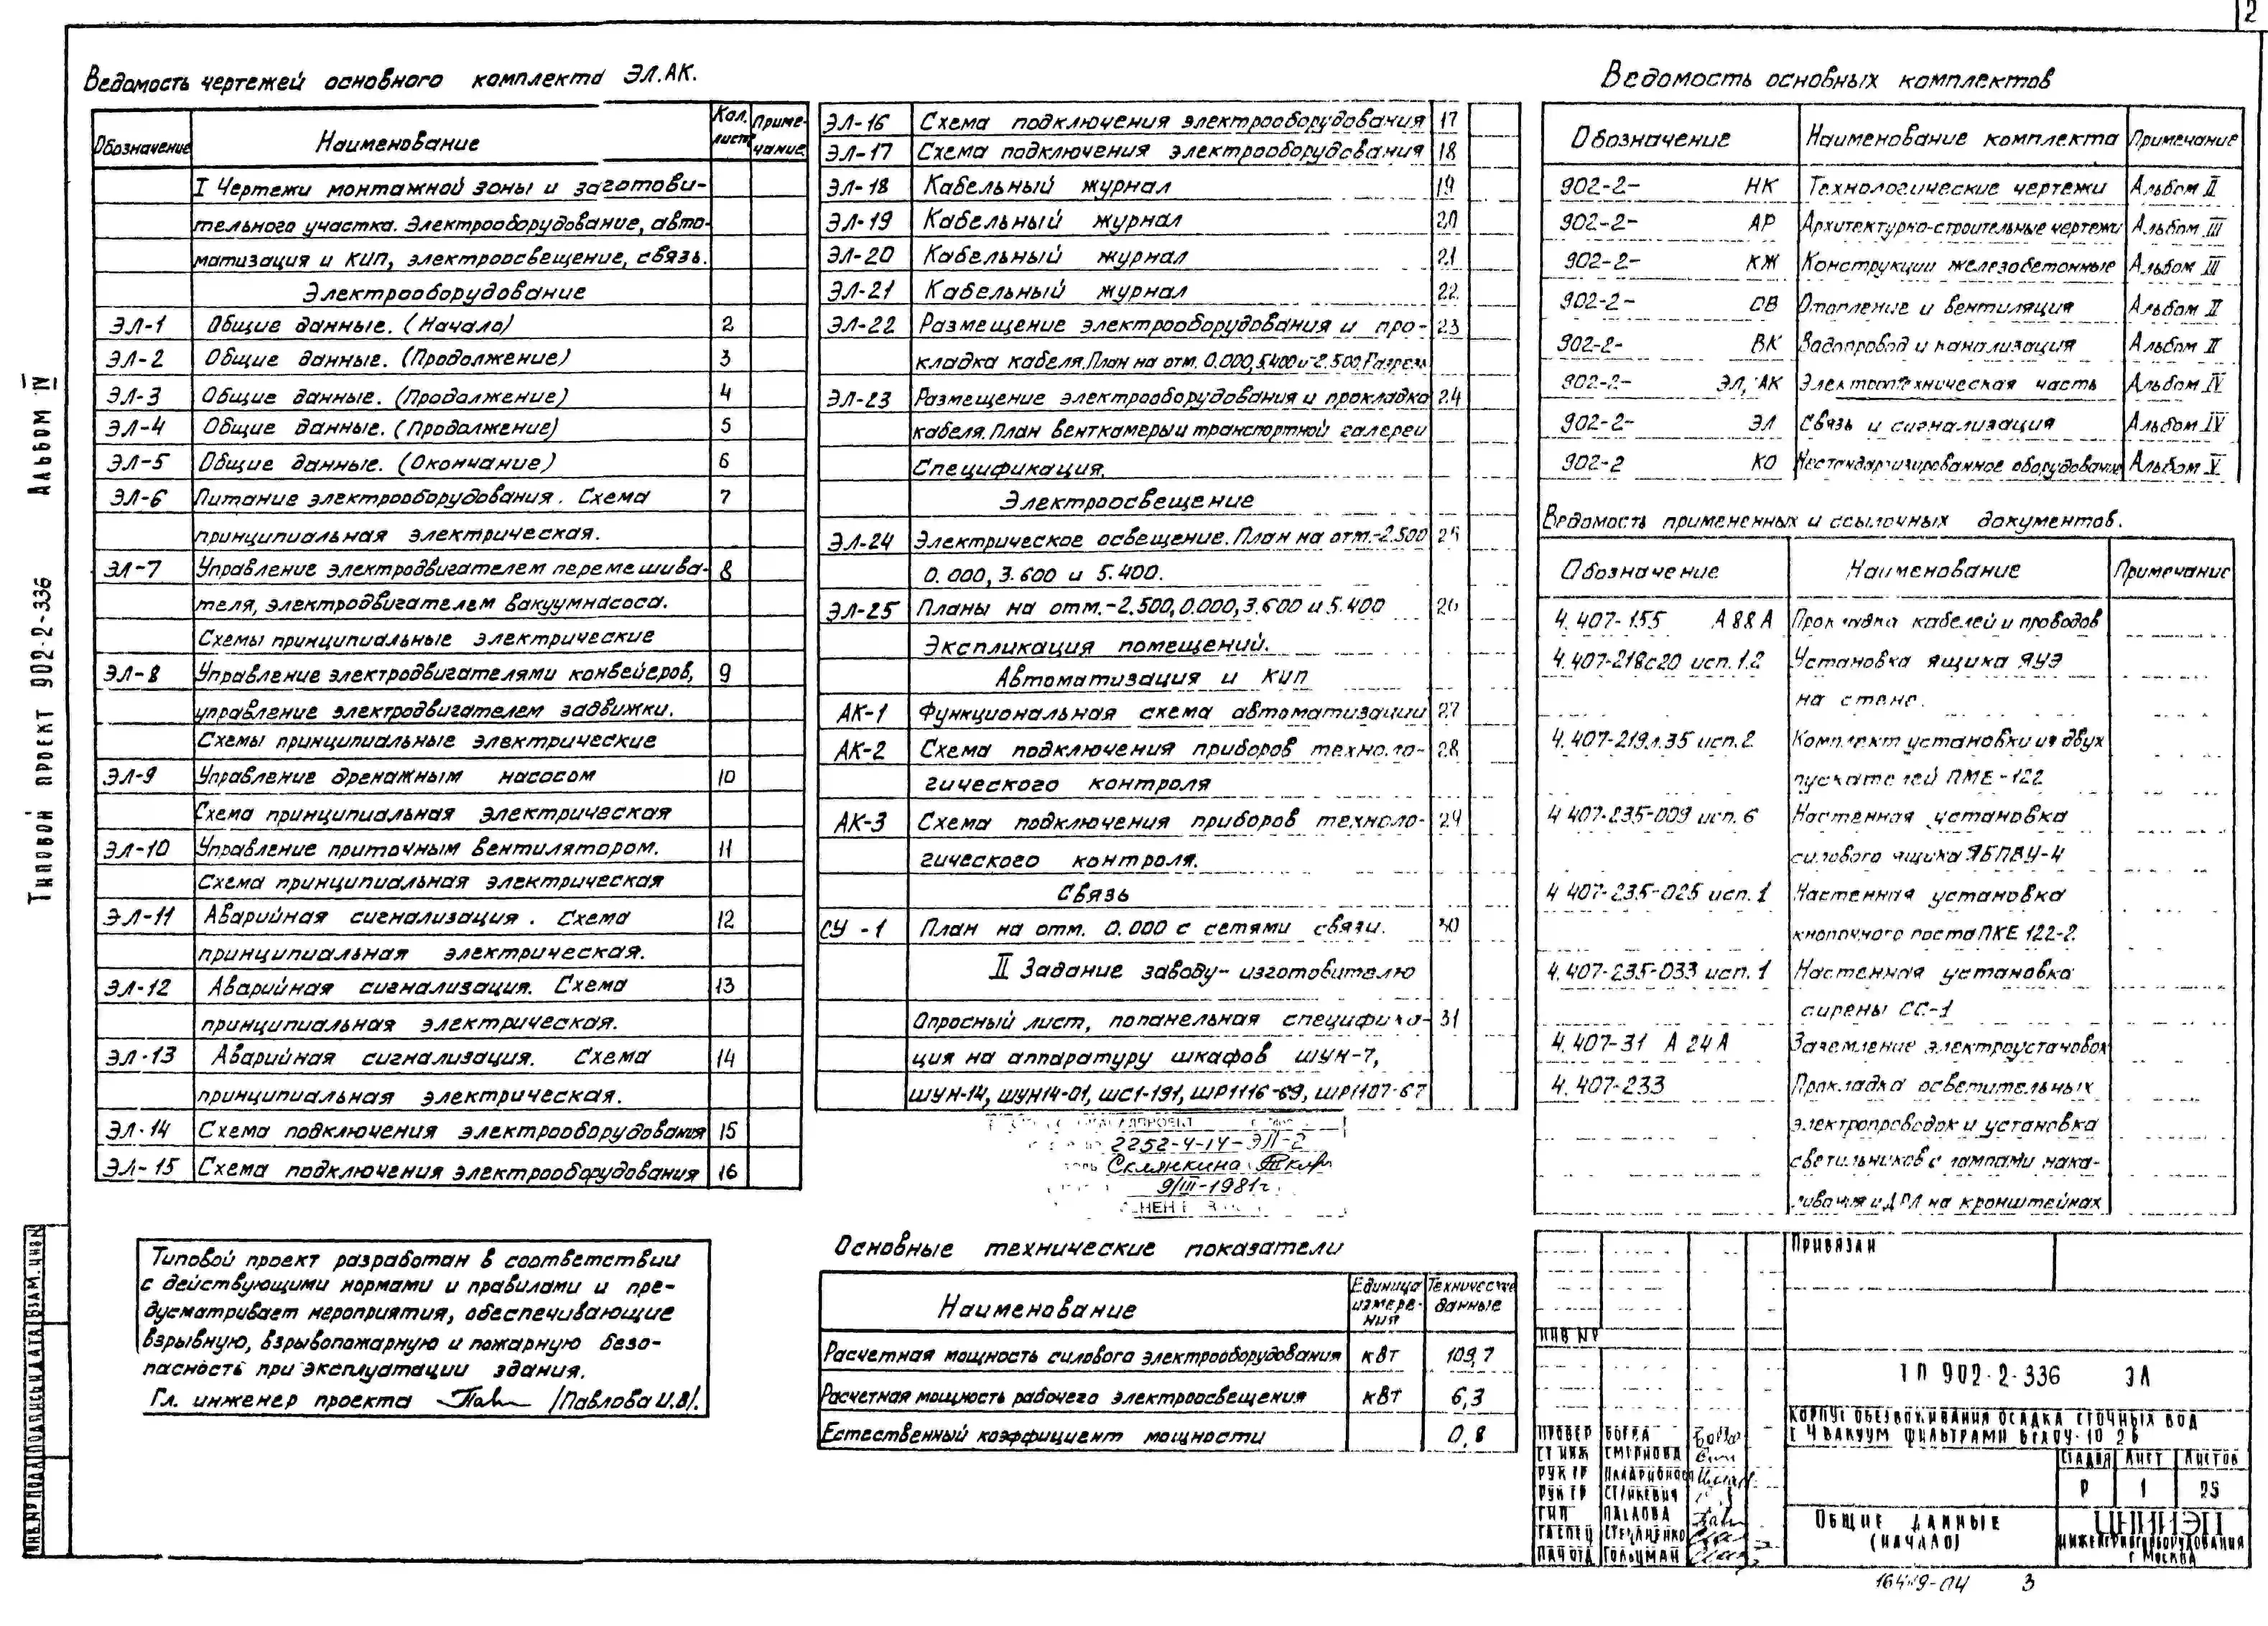 2
Ведомость чертежей основного комплекта ЭЛ.АК.
Обозначение Наименование Кол. лист Примечание
I Чертежи монтажной зоны и заготови-
тельного участка. Электрооборудование, авто-
матизация и КИП, электроосвещение, связь.
Электрооборудование
ЭЛ-1 Общие данные. (Начало) 2
ЭЛ-2 Общие данные. (Продолжение) 3
ЭЛ-3 Общие данные. (Продолжение) 4
ЭЛ-4 Общие данные. (Продолжение) 5
ЭЛ-5 Общие данные. (Окончание) 6
ЭЛ-6 Питание электрооборудования. Схема 7
принципиальная электрическая.
ЭЛ-7 Управление электродвигателем перемешива- 8
теля, электродвигателем вакуумнасоса.
Схемы принципиальные электрические
ЭЛ-8 Управление электродвигателями конвейеров, 9
управление электродвигателем задвижки.
Схемы принципиальные электрические
ЭЛ-9 Управление дренажным насосом 10
Схема принципиальная электрическая
ЭЛ-10 Управление приточным вентилятором. 11
Схема принципиальная электрическая
ЭЛ-11 Аварийная сигнализация. Схема 12
принципиальная электрическая.
ЭЛ-12 Аварийная сигнализация. Схема 13
принципиальная электрическая.
ЭЛ-13 Аварийная сигнализация. Схема 14
принципиальная электрическая.
ЭЛ-14 Схема подключения электрооборудования 15
ЭЛ-15 Схема подключения электрооборудования 16
ЭЛ-16 Схема подключения электрооборудования 17
ЭЛ-17 Схема подключения электрооборудования 18
ЭЛ-18 Кабельный журнал 19
ЭЛ-19 Кабельный журнал 20
ЭЛ-20 Кабельный журнал 21
ЭЛ-21 Кабельный журнал 22
ЭЛ-22 Размещение электрооборудования и про- 23
кладка кабеля. План на отм. 0.000, 5.400 и -2.500. Разрезы
ЭЛ-23 Размещение электрооборудования и прокладка 24
кабеля. План венткамеры и транспортной галереи
Спецификация.
Электроосвещение
ЭЛ-24 Электрическое освещение. План на отм.-2.500 25
0.000, 3.600 и 5.400.
ЭЛ-25 Планы на отм.-2.500, 0.000, 3.600 и 5.400 26
Экспликация помещений.
Автоматизация и КИП
АК-1 Функциональная схема автоматизации 27
АК-2 Схема подключения приборов техноло- 28
гического контроля
АК-3 Схема подключения приборов техноло- 29
гического контроля.
Связь
СУ-1 План на отм. 0.000 с сетями связи. 30
II Задание заводу-изготовителю
Опросный лист, попанельная специфика- 31
ция на аппаратуру шкафов ШУН-7,
ШУН-14, ШУН14-01, ШС1-191, ШР1116-69, ШР1107-67
2252-4-14-ЭЛ-2
Склянкина
9/III-1981г.
Ведомость основных комплектов
Обозначение Наименование комплекта Примечание
902-2- НК Технологические чертежи Альбом II
902-2- АР Архитектурно-строительные чертежи Альбом III
902-2- КЖ Конструкции железобетонные Альбом III
902-2- ОВ Отопление и вентиляция Альбом II
902-2- ВК Водопровод и канализация Альбом II
902-2- ЭЛ, АК Электротехническая часть Альбом IV
902-2- ЭЛ Связь и сигнализация Альбом IV
902-2 КО Нестандартизированное оборудование Альбом V
Ведомость примененных и ссылочных документов.
Обозначение Наименование Примечание
4.407-155 А88А Прокладка кабелей и проводов
4.407-218с20 исп.1.2 Установка ящика ЯУЭ
на стене.
4.407-219л.35 исп.2 Комплект установки из двух
пускателей ПМЕ-122
4 407-235-009 исп. 6 Настенная установка
силового ящика ЯБПВУ-4
4 407-235-025 исп. 1 Настенная установка
кнопочного поста ПКЕ 122-2.
4.407-235-033 исп. 1 Настенная установка
сирены СС-1
4.407-31 А24А Заземление электроустановок
4.407-233 Прокладка осветительных
электропроводок и установка
светильников с лампами нака-
ливания и ДРЛ на кронштейнах
Типовой проект 902-2-336 Альбом IV
Инв.№ подл. Подпись и дата Взам. инв.№
Типовой проект разработан в соответствии
с действующими нормами и правилами и пре-
дусматривает мероприятия, обеспечивающие
взрывную, взрывопожарную и пожарную безо-
пасность при эксплуатации здания.
Гл. инженер проекта /Павлова И.В/.
Основные технические показатели
Наименование Единица измерения Технические данные
Расчетная мощность силового электрооборудования кВт 109,7
Расчетная мощность рабочего электроосвещения кВт 6,3
Естественный коэффициент мощности 0,8
Привязан
Инв №
ТП 902-2-336 ЭЛ
Корпус обезвоживания осадка сточных вод
с 4 вакуум фильтрами
Стадия Лист Листов
Р 1 25
Провер
Ст инж Смирнова
Рук гр
Рук гр
ГИП Павлова
Гл спец Степаненко
Нач отд Гольцман
Общие данные
(начало)
ЦНИИЭП
инженерного оборудования
г Москва
3